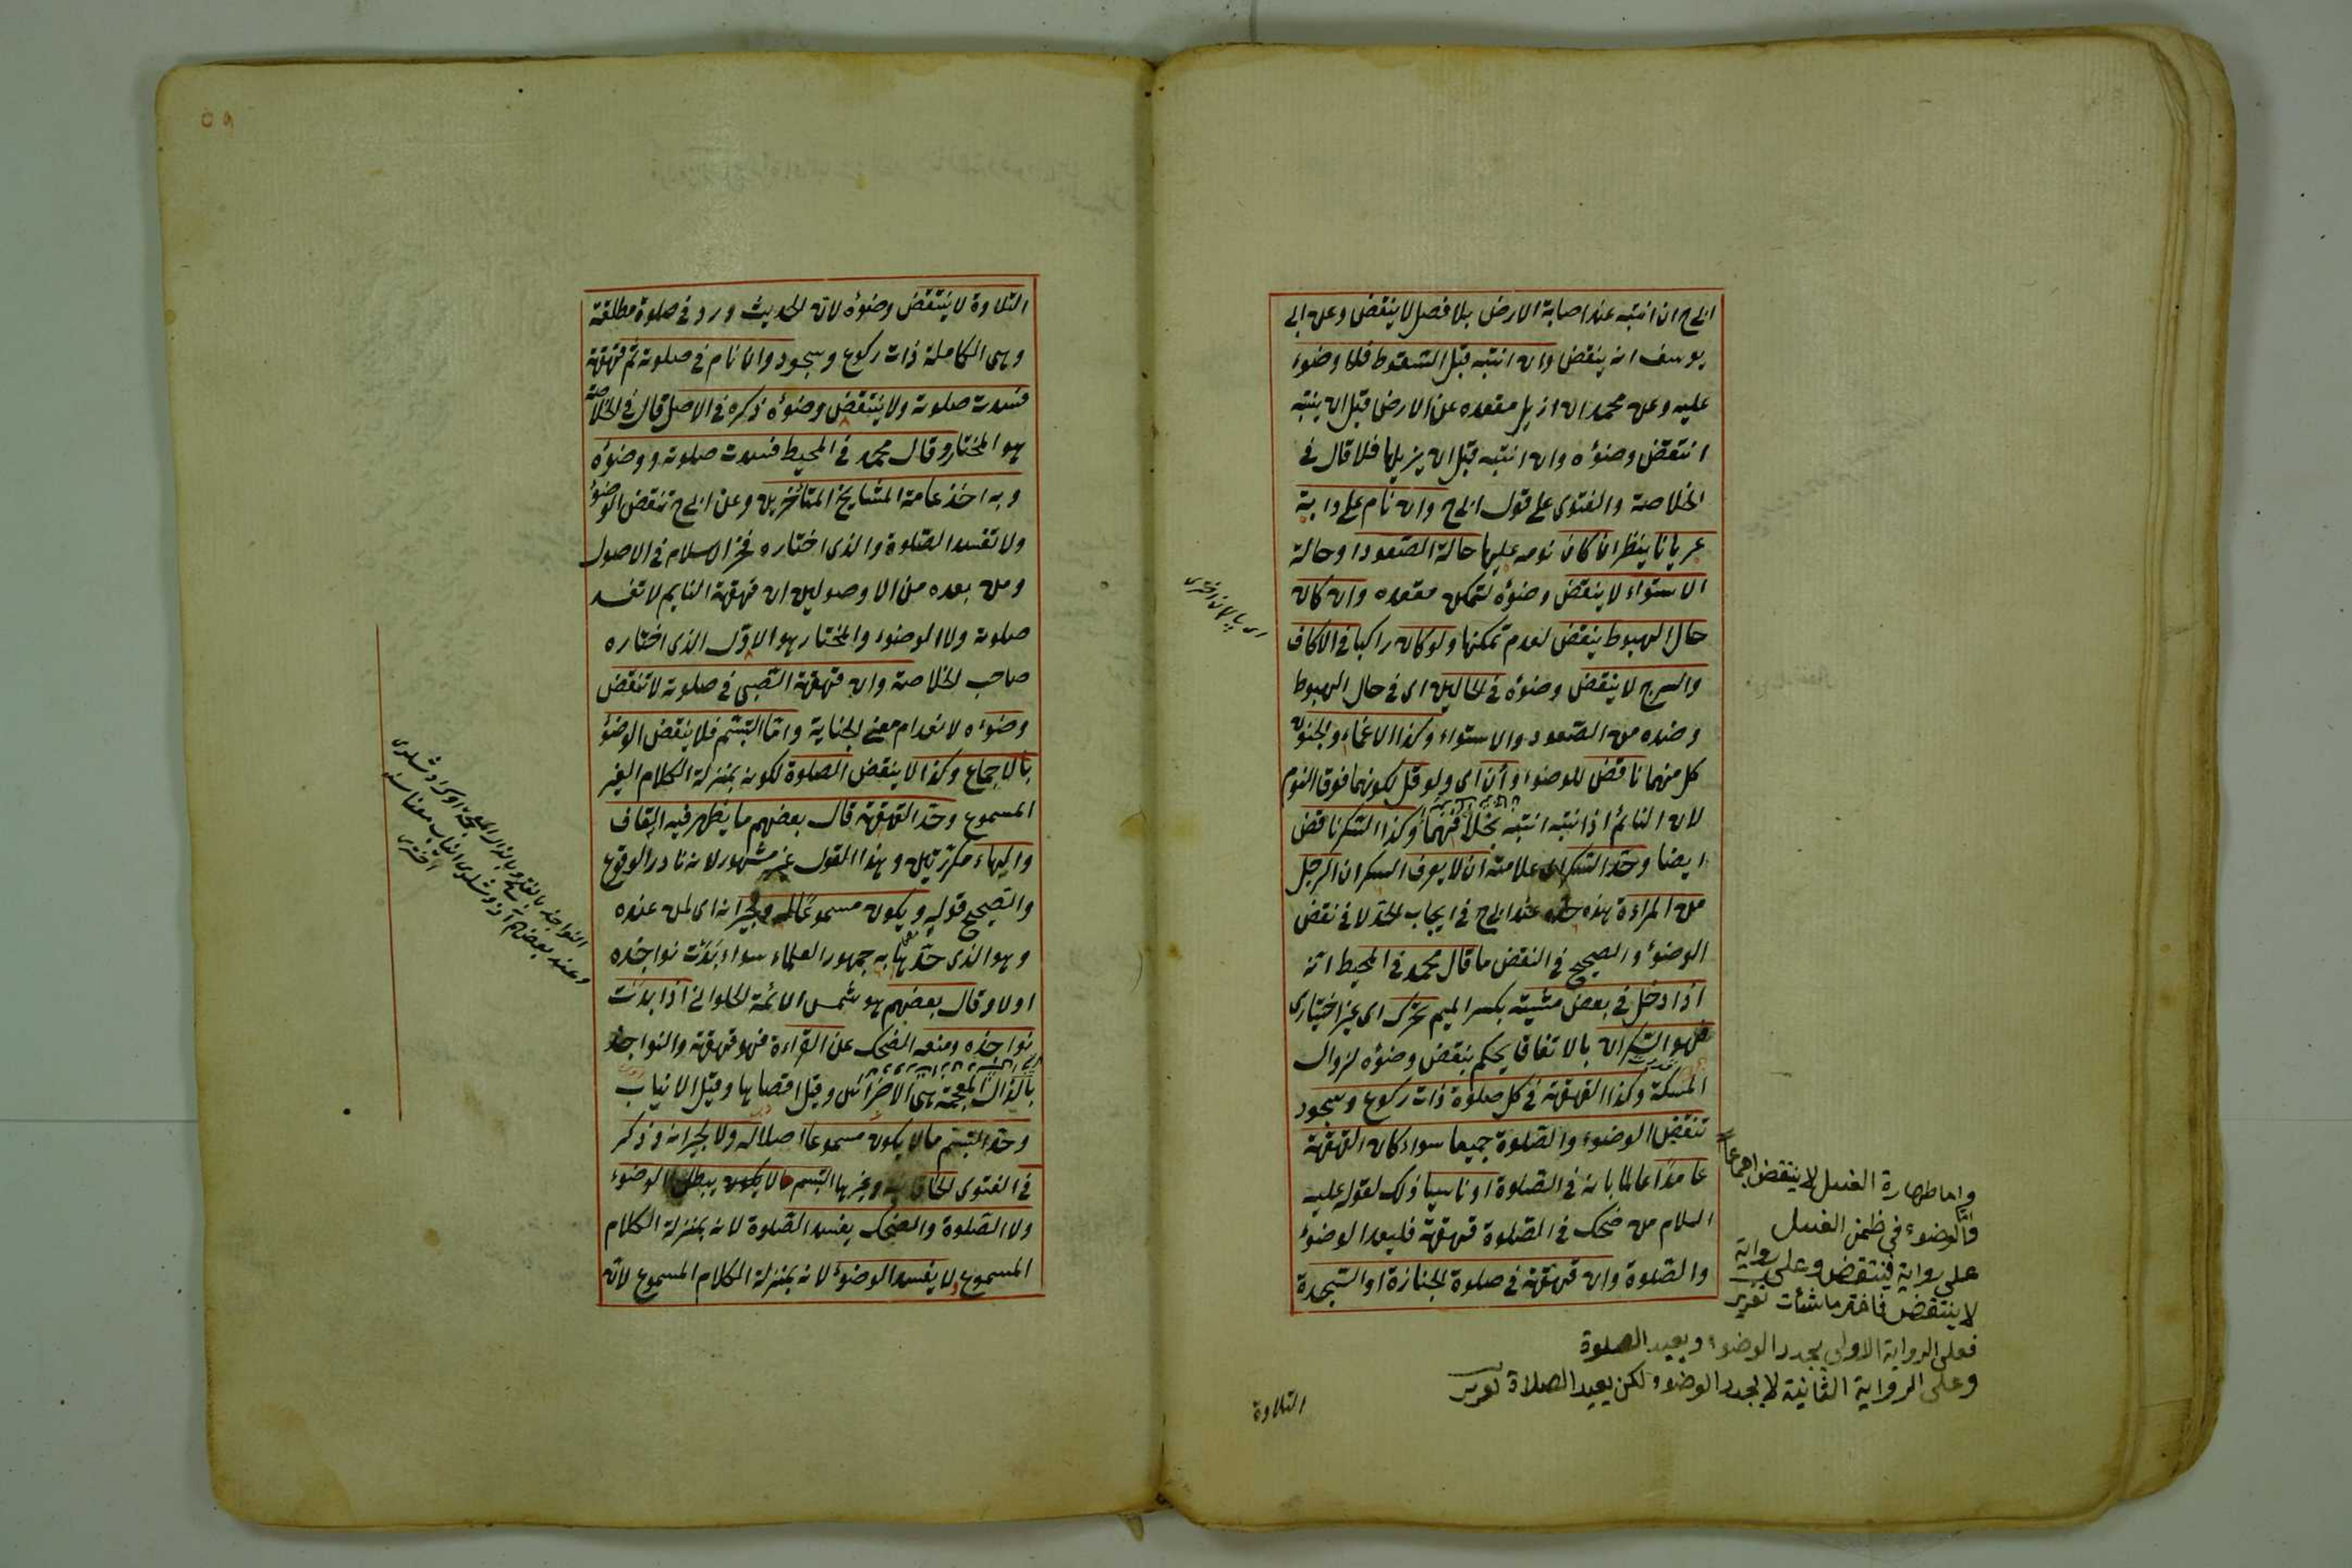 ابى ح ان انتبه عند اصابة الارض بلا فصل لا ينقض وعن ابى
يوسف انه ينقض وان انتبه قبل السقوط فلا وضوء
عليه وعن محمد ان ازيل مقعده عن الارض قبل ان ينتبه
انتقض وضوؤه وان انتبه قبل ان يزيلها فلا قال فى
الخلاصة والفتوى على قول ابى ح وان نام على دابة
عريانا ينظر ان كان نومه عليها حالة الصعود او حالة
الاستواء لا ينقض وضوؤه لتمكن مقعده وان كان
حال الهبوط ينقض لعدم تمكنها ولو كان راكبا فى الاكاف
والسرج لا ينقض وضوؤه فى الحالين اى فى حال الهبوط
وضده من الصعود والاستواء وكذا الاغماء والجنون
كل منهما ناقض للوضوء وأن اى ولو قل لكونهما فوق النوم
لان النائم اذا نتبه انتبه بخلا فهما وكذا السكر ناقض
ايضا وحد السكران علامته ان لا يعرف السكران الرجل
من المراءة هذه حده عند ابى ح فى ايجاب الحد لا فى نقض
الوضوء والصحيح فى النقض ما قال محمد فى المحيط انه
اذا دخل فى بعض مشيته بكسر الميم تحرك اى غير اختيارى
فهو السكران بالاتفاق يحكم بنقض وضوؤه لزوال
المسكة وكذا القهقهة فى كل صلوة ذات ركوع وسجود
تنقض الوضوء والصلوة جميعا سواء كان القهقهة
عامدا عالما بانه فى الصلوة او ناسيا ذلك لقوله عليه
السلام من ضحك فى الصلوة قهقهة فليعد الوضوء
والصلوة وان قهقهة فى صلوة الجنازة او السجدة
اى پالان اخترى
واما طهارة الغسل لا ينتقض اجماعا
فالوضوء فى ظمن الغسل
على رواية فينتقض وعلى رواية
لا ينتقض فاختر ما شئت تعزير
فعلى الرواية الاولى يجدد الوضوء ويعيد الصلوة
وعلى الرواية الثانية لا يجدد الوضوء لكن يعيد الصلاة
التلاوة
التلاوة لا ينتقض وضوؤه لان الحديث ورد فى صلوة مطلقة
وهى الكاملة ذات ركوع وسجود وان نام فى صلوته ثم قهقهة
فسدت صلوته ولا ينتقض وضوؤه ذكره فى الاصل قال فى الخلاصة
هو المختار وقال محمد فى المحيط فسدت صلوته ووضوؤه
وبه اخذ عامة المشايخ المتأخرين وعن ابى ح تنقض الوضوء
ولا تفسد الصلوة والذى اختاره فخر الاسلام فى الاصول
ومن بعده من الاوصولين ان قهقهة النايم لا تفسد
صلوته ولا الوضوء والمختار هو الاول الذى اختاره
صاحب الخلاصة وان قهقهة الصبى فى صلوته لا تنقض
وضوءه لانعدام معنى الجناية واما التبسم فلا ينقض الوضوء
بالاجماع وكذا لا ينقض الصلوة لكونه بمنزلة الكلام الغير
المسموع وحد القهقهة قال بعضهم ما يظهر فيه القاف
والهاء مكررتين وهذا القول غير مشهور لانه نادر الوقوع
والصحيح قوله ويكون مسموعا له ولجيرانه اى لمن عنده
وهو الذى حدها به جمهور العلماء سواء بدت نواجذه
اولا وقال بعضهم هو شمس الائمة الحلوانى اذا بدت
نواجذه ومنعه الضحك عن القراءة فهو قهقهة والنواجذ
بالذال المعجمة هى الاضراس وقيل اقصاها وقيل الانياب
وحد التبسم ما لا يكون مسموعا اصلا له ولا لجيرانه وذكر
فى الفتوى الخاقانيه وغيرها التبسم لا يكون يبطل الوضوء
ولا الصلوة والضحك يفسد الصلوة لانه بمنزلة الكلام
المسموع ولا يفسد الوضوء لانه بمنزلة الكلام المسموع لانه
النواجذ بالفتح وبالذال المعجمة
وعند بعضهم
اخترى